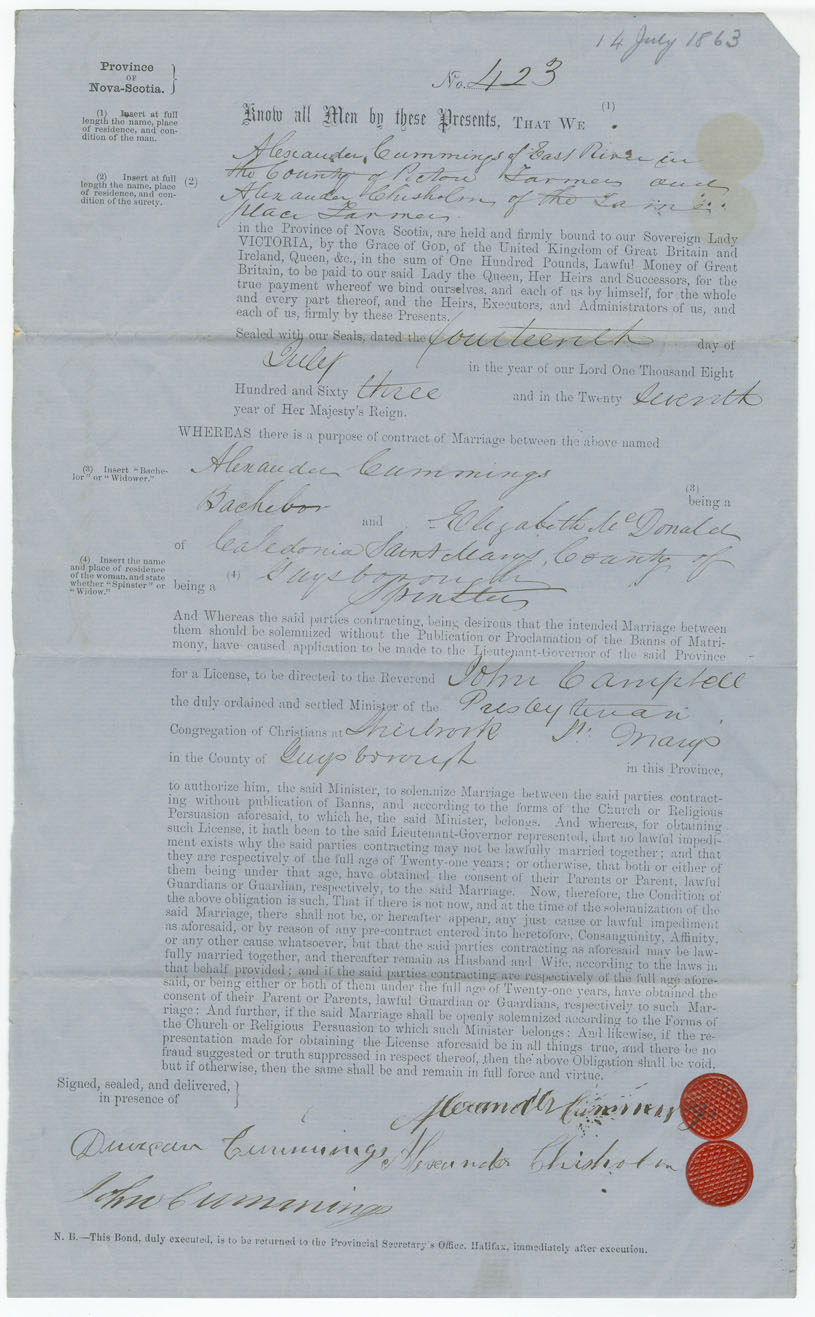 14 July 1863
Province
OF
Nova-Scotia.
No. 423
(1) Insert at full
length the name, place
of residence, and con-
dition of the man.
Know all Men by these Presents, THAT WE (1)
(2) Insert at full
length the name, place
of residence, and con-
dition of the surety.
(2)
Alexander Cummings of East River in
the County of Pictou Farmer and
Alexander Chisholm of the Same
place Farmer.
in the Province of Nova Scotia, are held and firmly bound to our Sovereign Lady
VICTORIA, by the Grace of GOD, of the United Kingdom of Great Britain and
Ireland, Queen, &c., in the sum of One Hundred Pounds, Lawful Money of Great
Britain, to be paid to our said Lady the Queen, Her Heirs and Successors, for the
true payment whereof we bind ourselves, and each of us by himself, for the whole
and every part thereof, and the Heirs, Executors, and Administrators of us, and
each of us, firmly by these Presents.
Sealed with our Seals, dated the fourteenth day of
July in the year of our Lord One Thousand Eight
Hundred and Sixty three and in the Twenty Seventh
year of Her Majesty's Reign.
WHEREAS there is a purpose of contract of Marriage between the above named
Alexander Cummings
(3) Insert "Bache-
lor" or "Widower."
(3)
being a
Bachelor and Elizabeth McDonald
of Caledonia Saint Marys, County of
(4) Insert the name
and place of residence
of the woman, and state
whether "Spinster" or
"Widow."
(4) Guysborough
being a Spinster
And Whereas the said parties contracting, being desirous that the intended Marriage between
them should be solemnized without the Publication or Proclamation of the Banns of Matri-
mony, have caused application to be made to the Lieutenant-Governor of the said Province
for a License, to be directed to the Reverend John Campbell
the duly ordained and settled Minister of the Presbyterian
Congregation of Christians at Sherbrook St. Marys
in the County of Guysborough in this Province,
to authorize him, the said Minister, to solemnize Marriage between the said parties contract-
ing without publication of Banns, and according to the forms of the Church or Religious
Persuasion aforesaid, to which he, the said Minister, belongs. And whereas, for obtaining
such License, it hath been to the said Lieutenant-Governor represented, that no lawful impedi-
ment exists why the said parties contracting may not be lawfully married together; and that
they are respectively of the full age of Twenty-one years; or otherwise, that both or either of
them being under that age, have obtained the consent of their Parents or Parent, lawful
Guardians or Guardian, respectively, to the said Marriage. Now, therefore, the Condition of
the above obligation is such, That if there is not now, and at the time of the solemnization of the
said Marriage, there shall not be, or hereafter appear, any just cause or lawful impediment
as aforesaid, or by reason of any pre-contract entered into heretofore, Consanguinity, Affinity,
or any other cause whatsoever, but that the said parties contracting as aforesaid may be law-
fully married together, and thereafter remain as Husband and Wife, according to the laws in
that behalf provided; and if the said parties contracting are respectively of the full age afore-
said, or being either or both of them under the full age of Twenty-one years, have obtained the
consent of their Parent or Parents, lawful Guardian or Guardians, respectively to such Mar-
riage: And further, if the said Marriage shall be openly solemnized according to the Forms of
the Church or Religious Persuasion to which such Minister belongs: And likewise, if the re-
presentation made for obtaining the License aforesaid be in all things true, and there be no
fraud suggested or truth suppressed in respect thereof, then the above Obligation shall be void,
but if otherwise, then the same shall be and remain in full force and virtue.
Signed, sealed, and delivered,
in presence of
Alexander Cummings
Duncan Cummings
Alexander Chisholm
John Cummings
N. B.—This Bond, duly executed, is to be returned to the Provincial Secretary's Office, Halifax, immediately after execution.